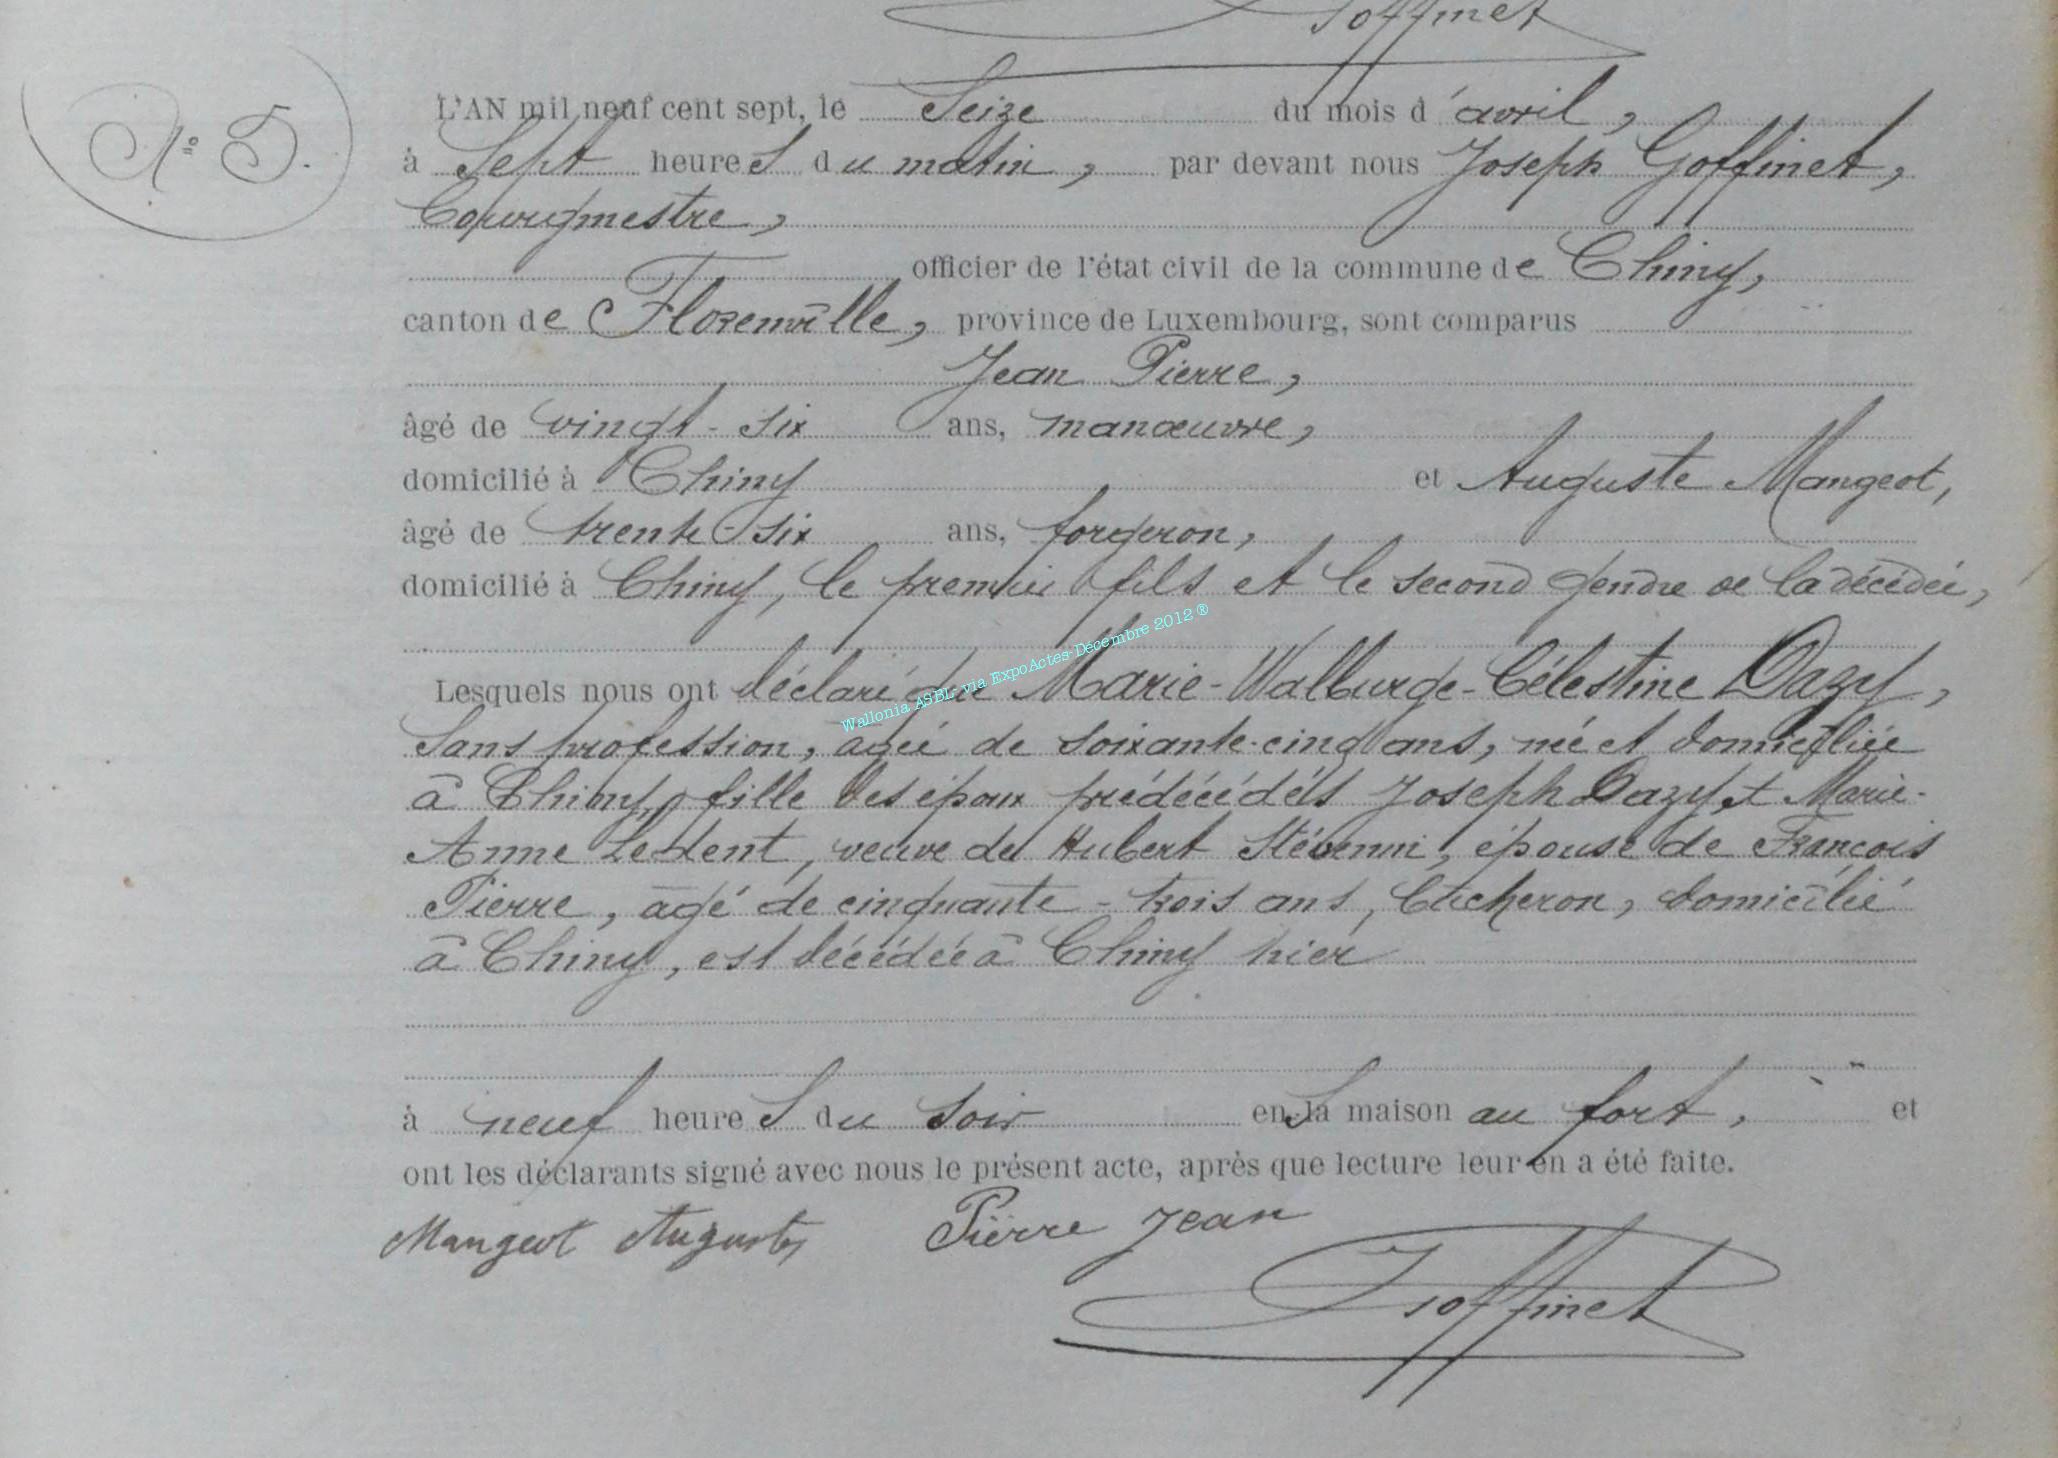 Goffinet
N° 5.
L'AN mil neuf cent sept, le Seize du mois d'avril,
à Sept heureS du matin, par devant nous Joseph Goffinet,
Bourgmestre,
officier de l'état civil de la commune de Chiny,
canton de Florenville, province de Luxembourg, sont comparus
Jean Pierre,
âgé de vingt-six ans, manœuvre,
domicilié à Chiny et Auguste Mangeot,
âgé de trente-six ans, forgeron,
domicilié à Chiny, le premier fils et le second gendre de la décédée,
Lesquels nous ont déclaré que Marie-Walburge-Célestine Dazy,
Sans profession, âgée de soixante-cinq ans, née et domiciliée
à Chiny, fille des époux prédécédés Joseph Dazy et Marie-
Anne Ledent, veuve de Hubert Stévenin, épouse de François
Pierre, âgé de cinquante-trois ans, bûcheron, domicilié
à Chiny, est décédée à Chiny hier
à neuf heureS du soir en Sa maison au fort, et
ont les déclarants signé avec nous le présent acte, après que lecture leur en a été faite.
Mangeot Auguste Pierre Jean
Goffinet
Wallonia ASBL via ExpoActes-Décembre 2012 ®